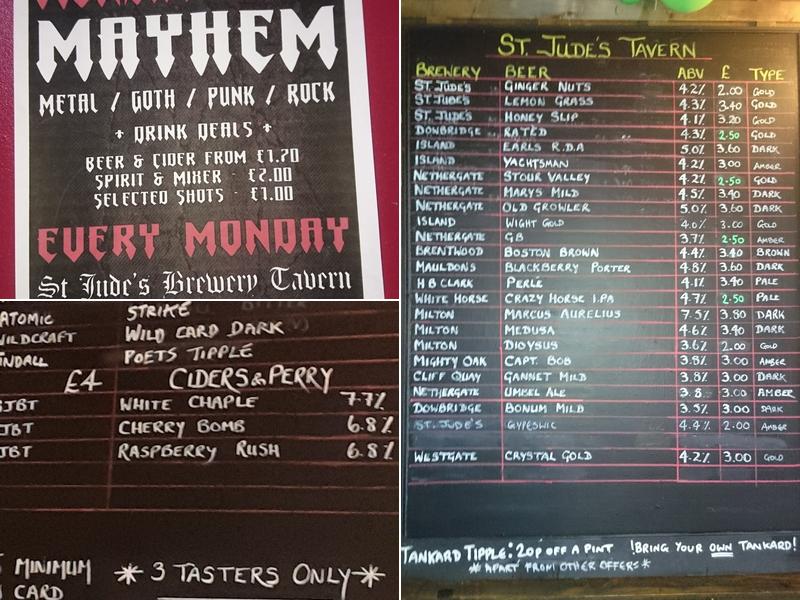 MAYHEM
METAL / GOTH / PUNK / ROCK
+ DRINK DEALS +
BEER & CIDER FROM £1.70
SPIRIT & MIXER - £2.00
SELECTED SHOTS - £1.00
EVERY MONDAY
St Jude's Brewery Tavern
ATOMIC STRIKE
WILDCRAFT WILD CARD DARK
TINDALL POETS TIPPLE
£4 CIDERS & PERRY
JBT WHITE CHAPLE 7.7%
JBT CHERRY BOMB 6.8%
JBT RASPBERRY RUSH 6.8%
MINIMUM
CARD
* 3 TASTERS ONLY *
ST. JUDE'S TAVERN
BREWERY BEER ABV £ TYPE
ST. JUDE'S GINGER NUTS 4.2% 2.00 GOLD
ST. JUDE'S LEMON GRASS 4.3% 3.40 GOLD
ST. JUDE'S HONEY SLIP 4.1% 3.20 GOLD
DOWBRIDGE RATED 4.3% 2.50 GOLD
ISLAND EARLS R.D.A 5.0% 3.60 DARK
ISLAND YACHTSMAN 4.2% 3.00 AMBER
NETHERGATE STOUR VALLEY 4.2% 2.50 GOLD
NETHERGATE MARYS MILD 4.5% 3.40 DARK
NETHERGATE OLD GROWLER 5.0% 3.60 DARK
ISLAND WIGHT GOLD 4.0% 3.00 GOLD
NETHERGATE GB 3.7% 2.50 AMBER
BRENTWOOD BOSTON BROWN 4.4% 3.40 BROWN
MAULDONS BLACKBERRY PORTER 4.8% 3.60 DARK
H B CLARK PERLE 4.1% 3.40 PALE
WHITE HORSE CRAZY HORSE I.PA 4.7% 2.50 PALE
MILTON MARCUS AURELIUS 7.5% 3.80 DARK
MILTON MEDUSA 4.6% 3.40 DARK
MILTON DIOYSUS 3.6% 2.00 GOLD
MIGHTY OAK CAPT. BOB 3.8% 3.00 AMBER
CLIFF QUAY GANNET MILD 3.8% 3.00 DARK
NETHERGATE UMBEL ALE 3.8 3.00 AMBER
DOWBRIDGE BONUM MILD 3.5% 3.00 DARK
ST. JUDE'S GYPESWIC 4.4% 2.00 AMBER
WESTGATE CRYSTAL GOLD 4.2% 3.00 GOLD
TANKARD TIPPLE: 20P OFF A PINT !BRING YOUR OWN TANKARD!
* APART FROM OTHER OFFERS *